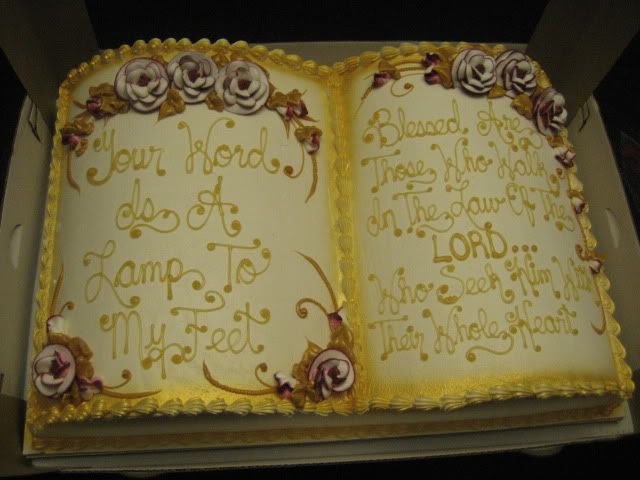 Your Word
Is A
Lamp To
My Feet
Blessed Are
Those Who Walk
In The Law Of The
LORD...
Who Seek Him With
Their Whole Heart